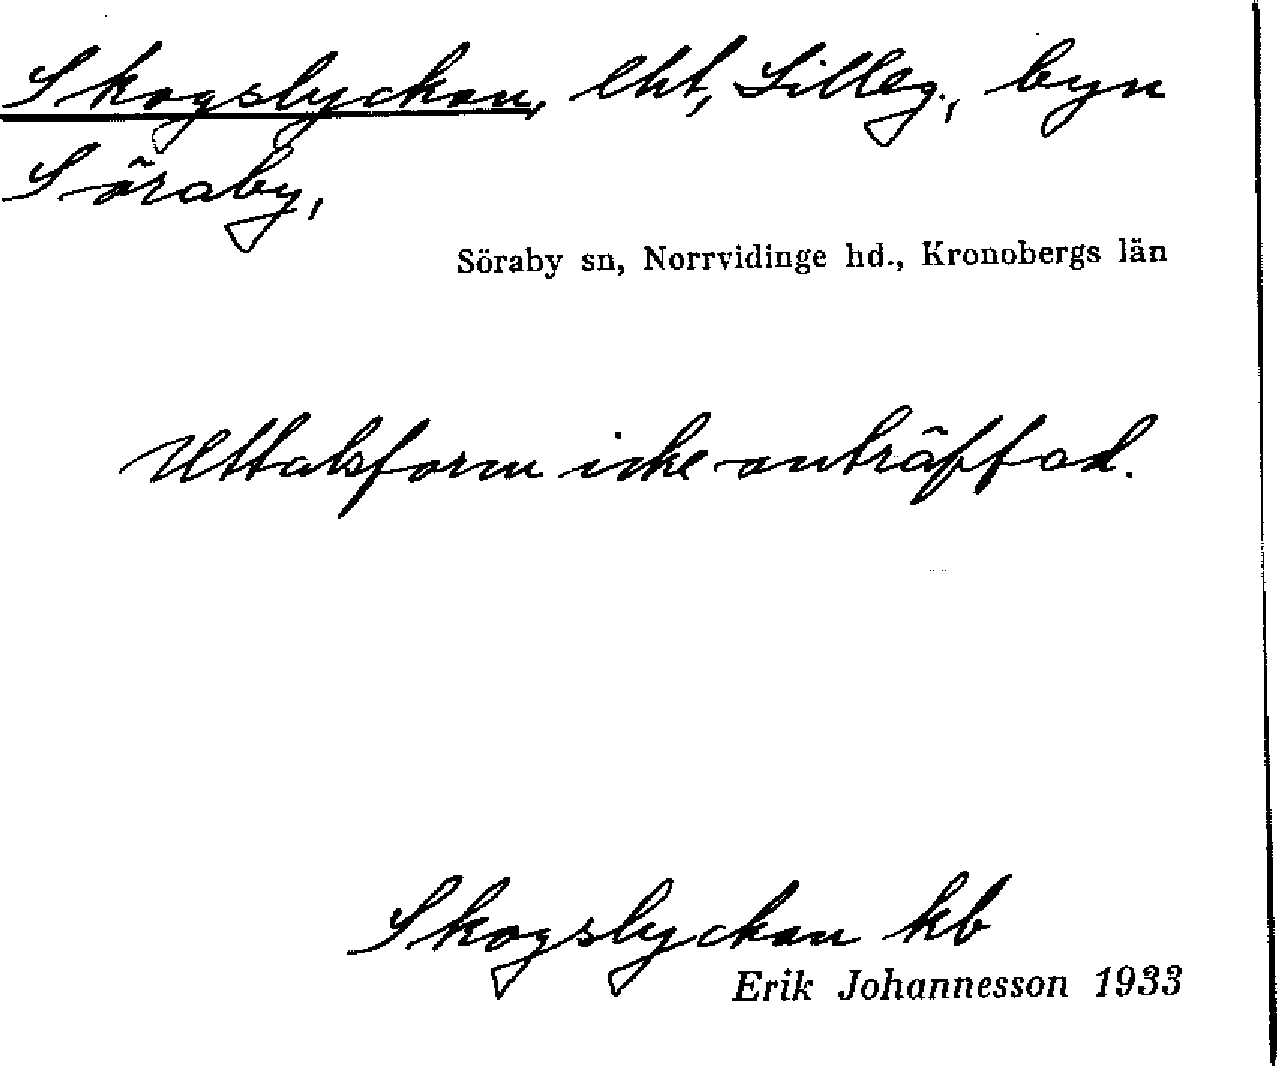 Skogslyckan, lht, Lilleg., byn
Söraby,
Söraby sn, Norrvidinge hd., Kronobergs län
Uttalsform icke anträffad.
Skogslyckan kb
Erik Johannesson 1933